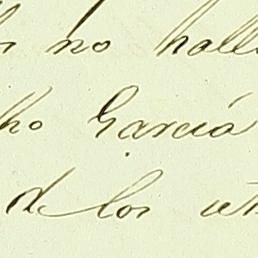 no hall
ho García
de los ut